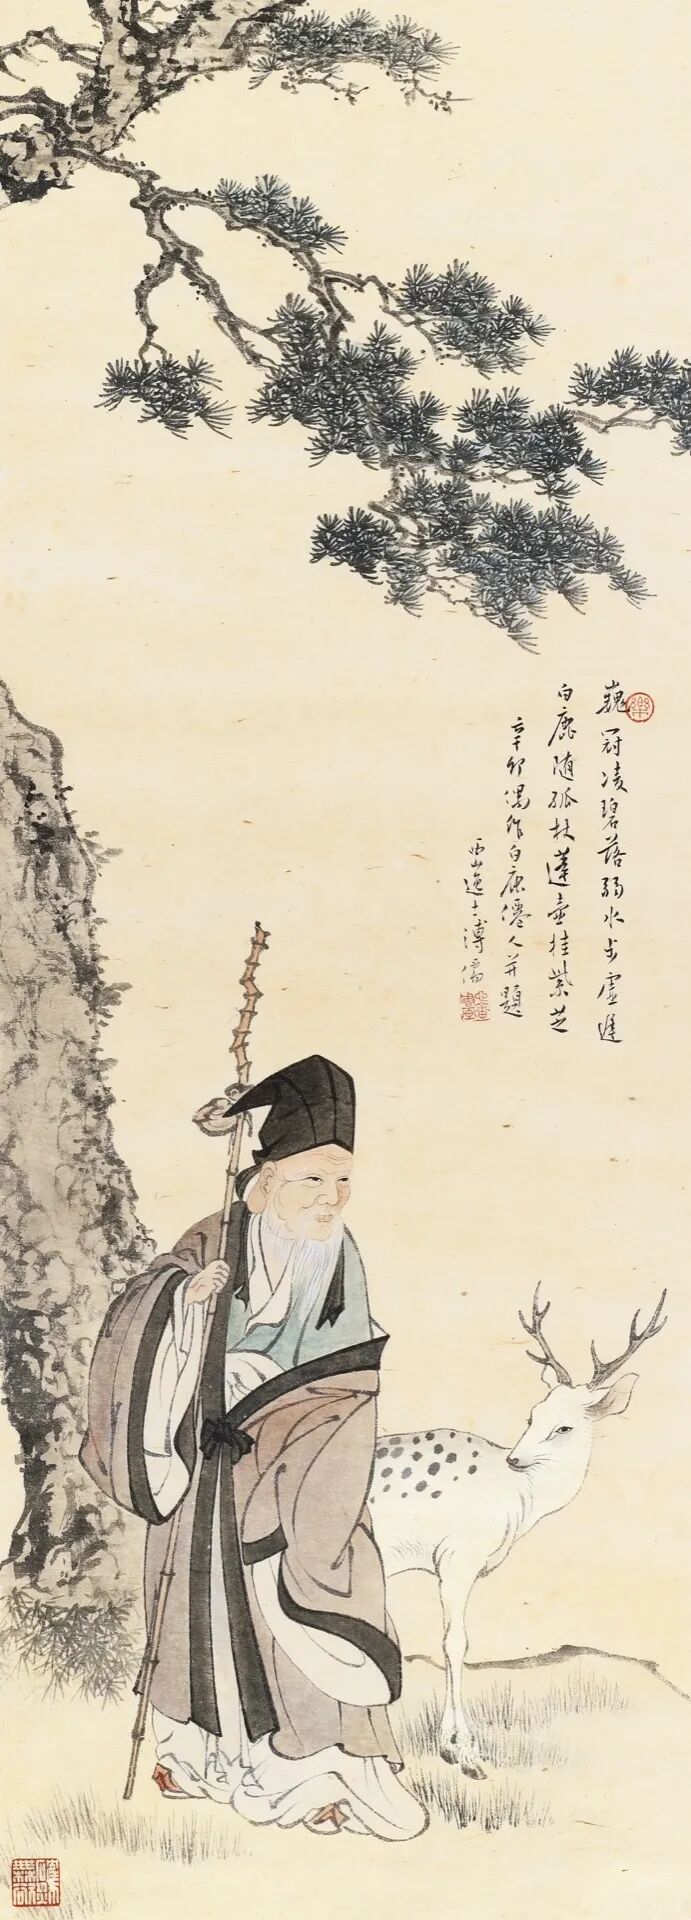 巍冠凌碧落弱水步虛遲
白鹿随孤杖蓬壶挂紫芝
辛卯偶作白鹿僊人并題
西山逸士溥儒